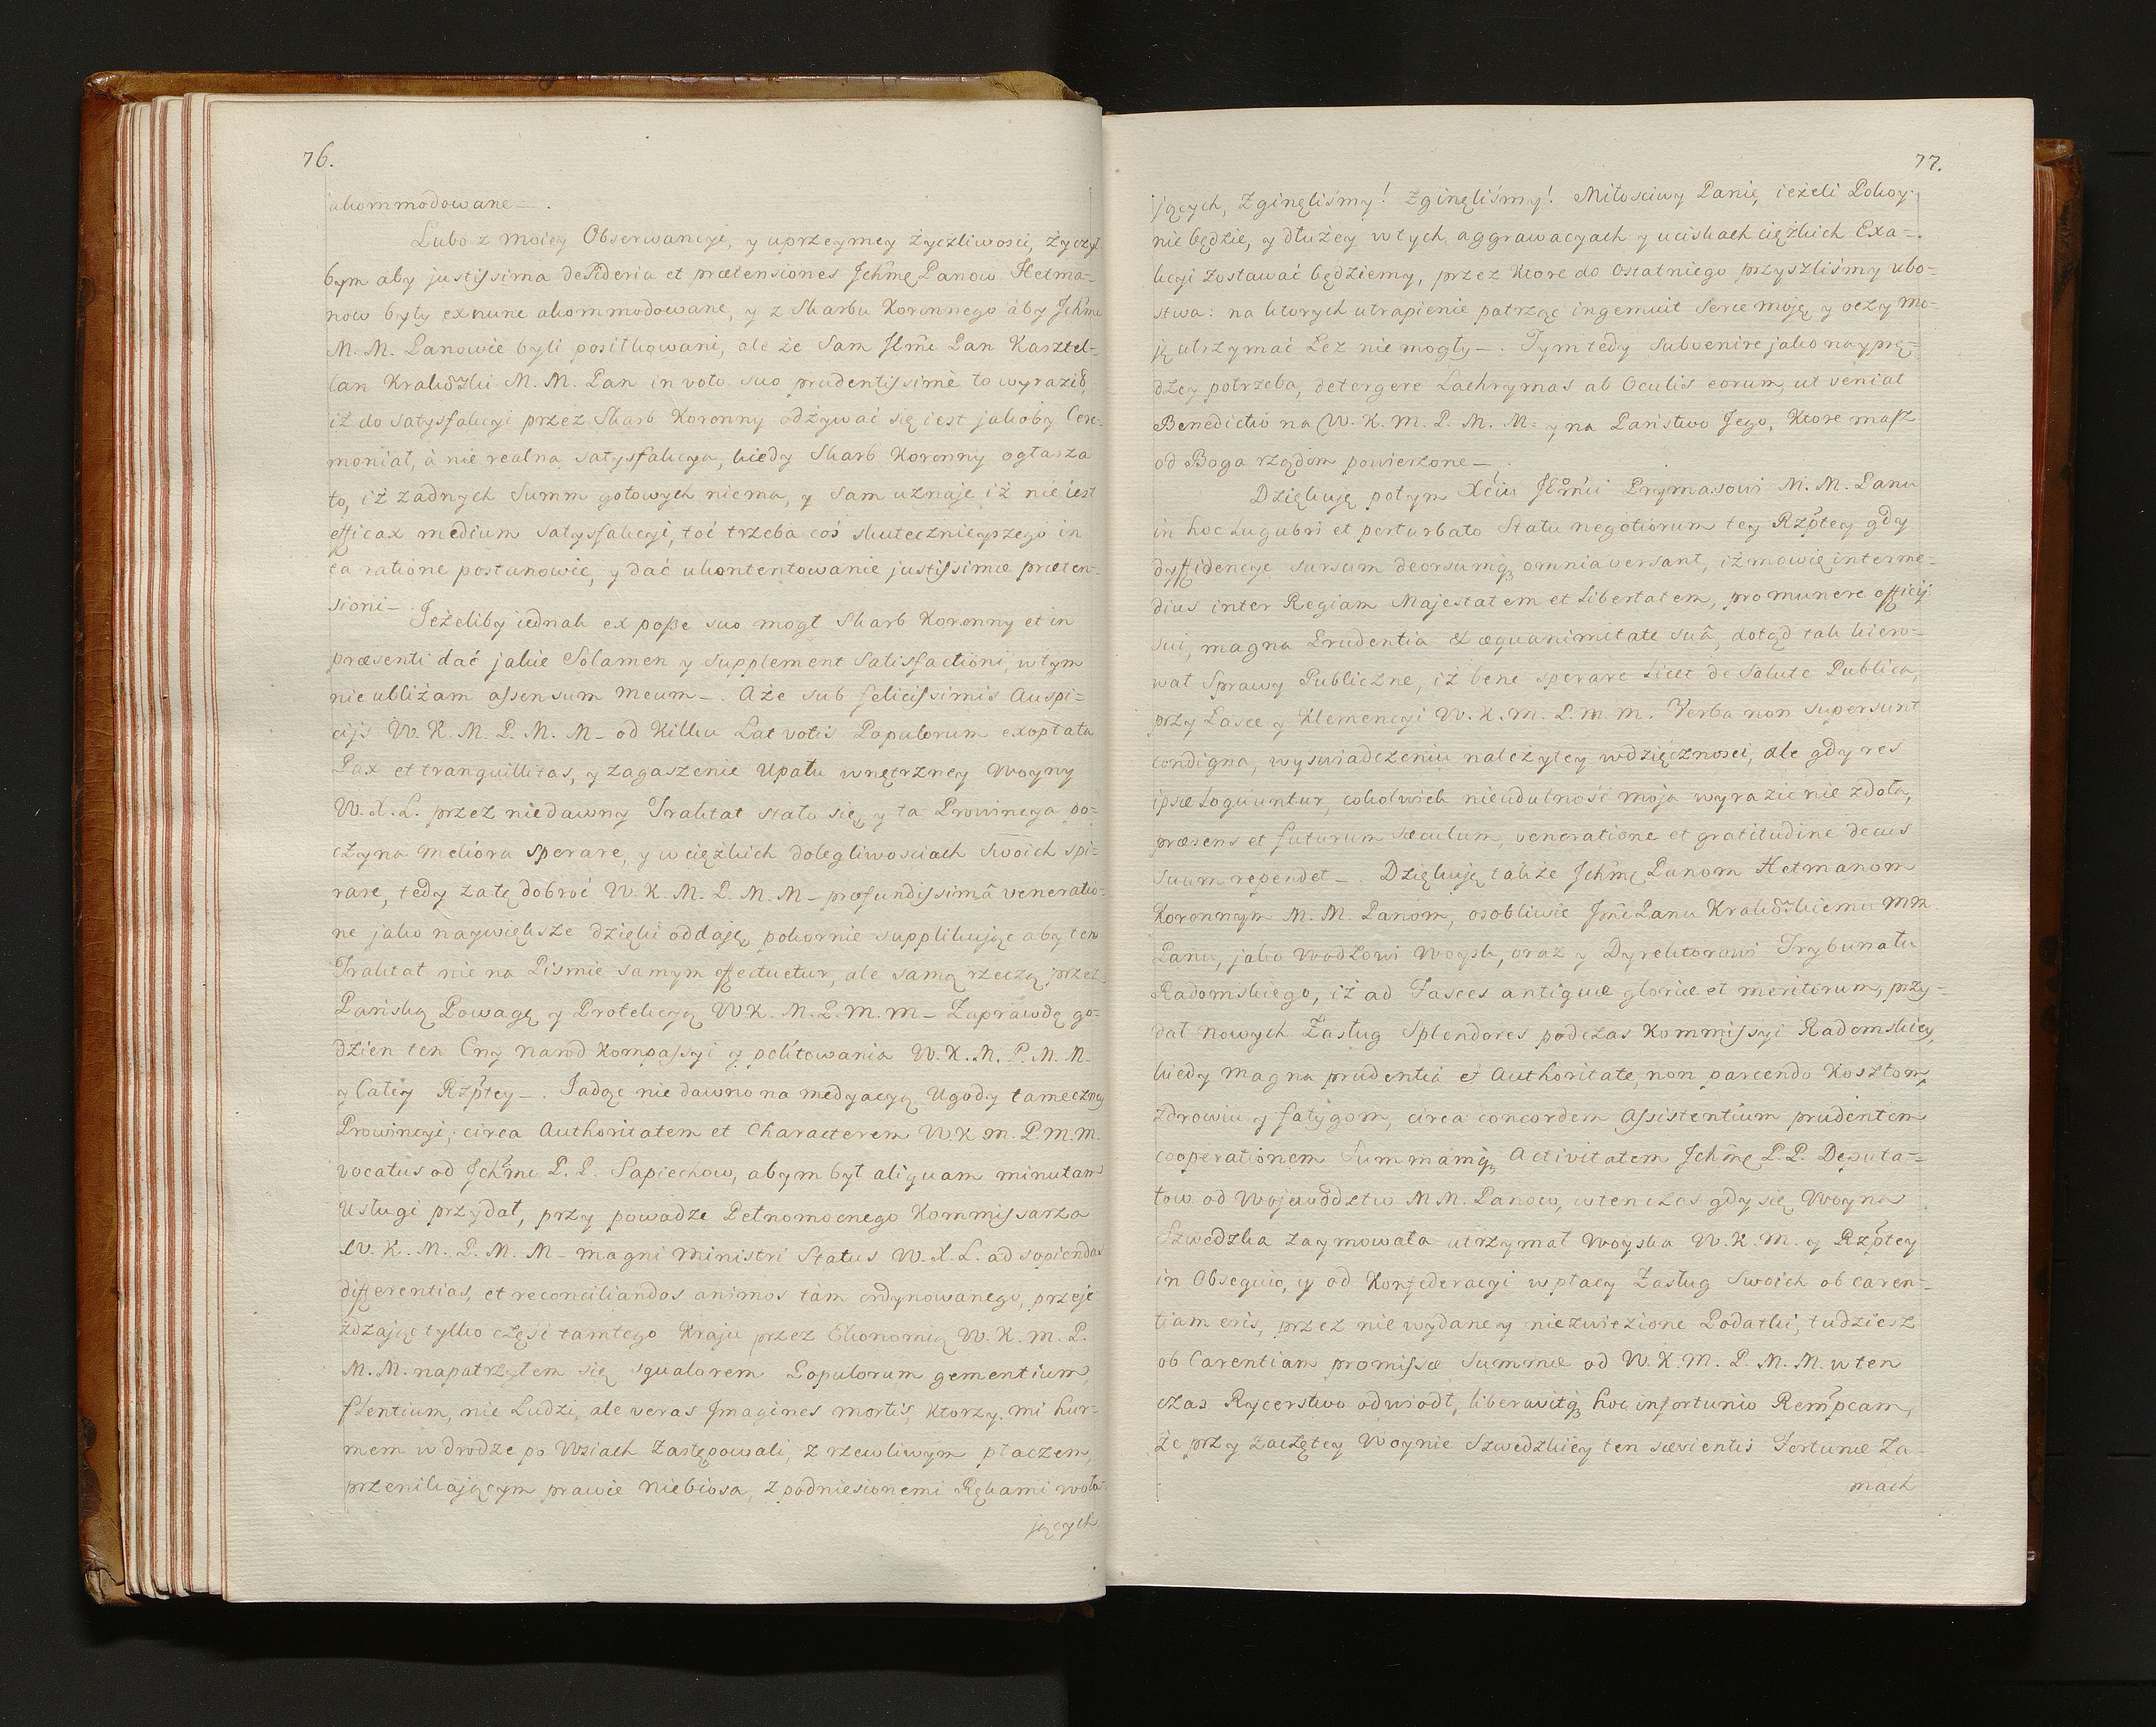 76.
akommodowane—.
Lubo z moiey Obserwancyi, y uprzeymey życzliwosci, życzył
bym aby justissima desideria et prætensiones Jchmę Panow Hetma-
now były exnunc akommodowane, y z Skarbu Koronnego áby Jchmę
M. M. Panowie byli posiłkowani, ale że Sam Jmę Pan Kasztel-
lan Krakowski M. M. Pan in voto suo prudentissimè to wyraził,
iż do satysfakcyi przez Skarb Koronny odżywać się iest jakoby Cere-
moniał, à nie realna satysfakcya, kiedy Skarb Koronny ogłasza
to, iż żadnych Summ gotowych niema, y sam uznaje iż nie iest
efficax medium satysfakcyi, toć trzeba coś skutecznieyszego in
ea ratione postanowić, y dać ukontentowanie justissimæ præten-
sioni—. Jeżeliby iednak ex posse suo mogł Skarb Koronny et in
præsenti dać jakie Solamen y supplement Satisfactioni, w tym
nie ubliżam assensum meum—. A że sub felicissimis Auspi-
cijs W. K. M. P. M. M— od Kilku Lat votis Populorum exoptata
Pax et tranquillitas, y zagaszenie Upału wnętrzney Woyny
W. X. L. przez niedawny Traktat stało się, y ta Prowincya po-
czyna meliora sperare, y w ciężkich dolegliwosciach swoich spi-
rare, tedy za tę dobroć W. K. M. P. M. M— profundissimâ veneratio-
ne jako naywiększe dzięki oddaję, pokornie supplikując aby ten
Traktat nie na Pismie samym effectuetur, ale samą rzeczą przez
Pańską Powagę y Protekcyą W. K. M. P. M. M— Zaprawdę go-
dzien ten Cny narod Kompassyi y politowania W. K. M. P. M. M—
y Całey Rzptey—. Jadąc nie dawno na medyacyą Ugody tameczney
Prowincyi, circa Authoritatem et Characterem W. K. M. P. M. M.
vocatus od Jchmę P. P. Sapiechow, abym był aliquam minutam
Usługi przydał, przy powadze Pełnomocnego Kommissarza
W. K. M. P. M. M— magni Ministri Status W. X. L. ad sopiendas
differentias, et reconciliandos animos tám ordynowanego, przeje-
żdżając tylko część tamtego Kraju przez Ekonomią W. K. M. P.
M. M. napatrzyłem się squalorem Populorum gementium,
flentium, nie Ludzi, ale veras Imagines mortis, Ktorzy mi hur-
mem w drodze po Wsiach Zastępowali, z rzewliwym płaczem,
przenikającym prawie niebiosa, z podniesionemi Rękami woła-
jących
77.
jących, Zginęliśmy! Zginęliśmy! Miłosciwy Panie, ieżeli Pokoy
nie będzie, y dłużey w tych aggrawacyach y uciskach ciężkich Exa-
kcyi zostawać będziemy, przez Ktore do Ostatniego przyszliśmy ubo-
stwa: na ktorych utrapienie patrząc ingemuit Serce moję, y oczy mo-
ję utrzymać Łez nie mogły—. Tym tedy subvenire jako nayprę-
dzey potrzeba, detergere Lachrymas ab Oculis eorum, ut veniat
Benedictio na W. K. M. P. M. M. y na Państwo Jego, Ktore masz
od Boga rządom powierzone—.
Dziękuję potym Xciu Jmci Prymasowi M. M. Panu
in hoc lugubri et perturbato Statu negotiorum tey Rzptey gdy
dyffidencye sursum deorsumq; omnia versant, iż mowię interme-
dius inter Regiam Majestatem et Libertatem, pro munere officij
sui, magna Prudentia & æquanimitate suâ, dotąd tak kiero-
wał Sprawy Publiczne, iż bene sperare licet de Salute Publica,
przy Łasce y Klemencyi W. K. M. P. M. M. Verba non supersunt
condigna, wyswiadczeniu należytey wdzięcznosci, ale gdy res
ipsæ loquuntur, cokolwiek nieudulność moja wyrazić nie zdoła,
præsens et futurum sæculum, veneratione et gratitudine decus
suum rependet—. Dziękuję także Jchmę Panom Hetmanom
Koronnym M. M. Panóm, osobliwie Jmę Panu Krakowskiemu M M
Panu, jako Wodzowi Woysk, oraz y Dyrektorowi Trybunału
Radomskiego, iż ad Fasces antiquæ gloriæ et meritorum, przy-
dał nowych Zasług Splendores podczas Kommissyi Radomskiey,
kiedy magna prudentiá et Authoritate, non parcendo Kosztom,
zdrowiu y fatygom, circa concordem Assistentium prudentem
cooperationem Summamq; Activitatem Jchmę P. P. Deputa-
tow od Wojewodztw M M. Panow, w tenczas gdy się Woyna
Szwedzka zaymowała utrzymał Woyska W. K. M. y Rzptey
in Obsequio, y od Konfederacyi w płacy Zasług Swoich ob caren-
tiam eris, przez nie wydane y niezwiezione Podatki, tudziesz
ob Carentiam promissæ Summæ od W. K. M. P. M. M. w ten
czas Rycerstwo odwiodł, liberavitq; hoc infortunio Rempcam,
że przy zaczętey Woynie Szwedzkiey ten sævientis Fortunæ Za-
mach